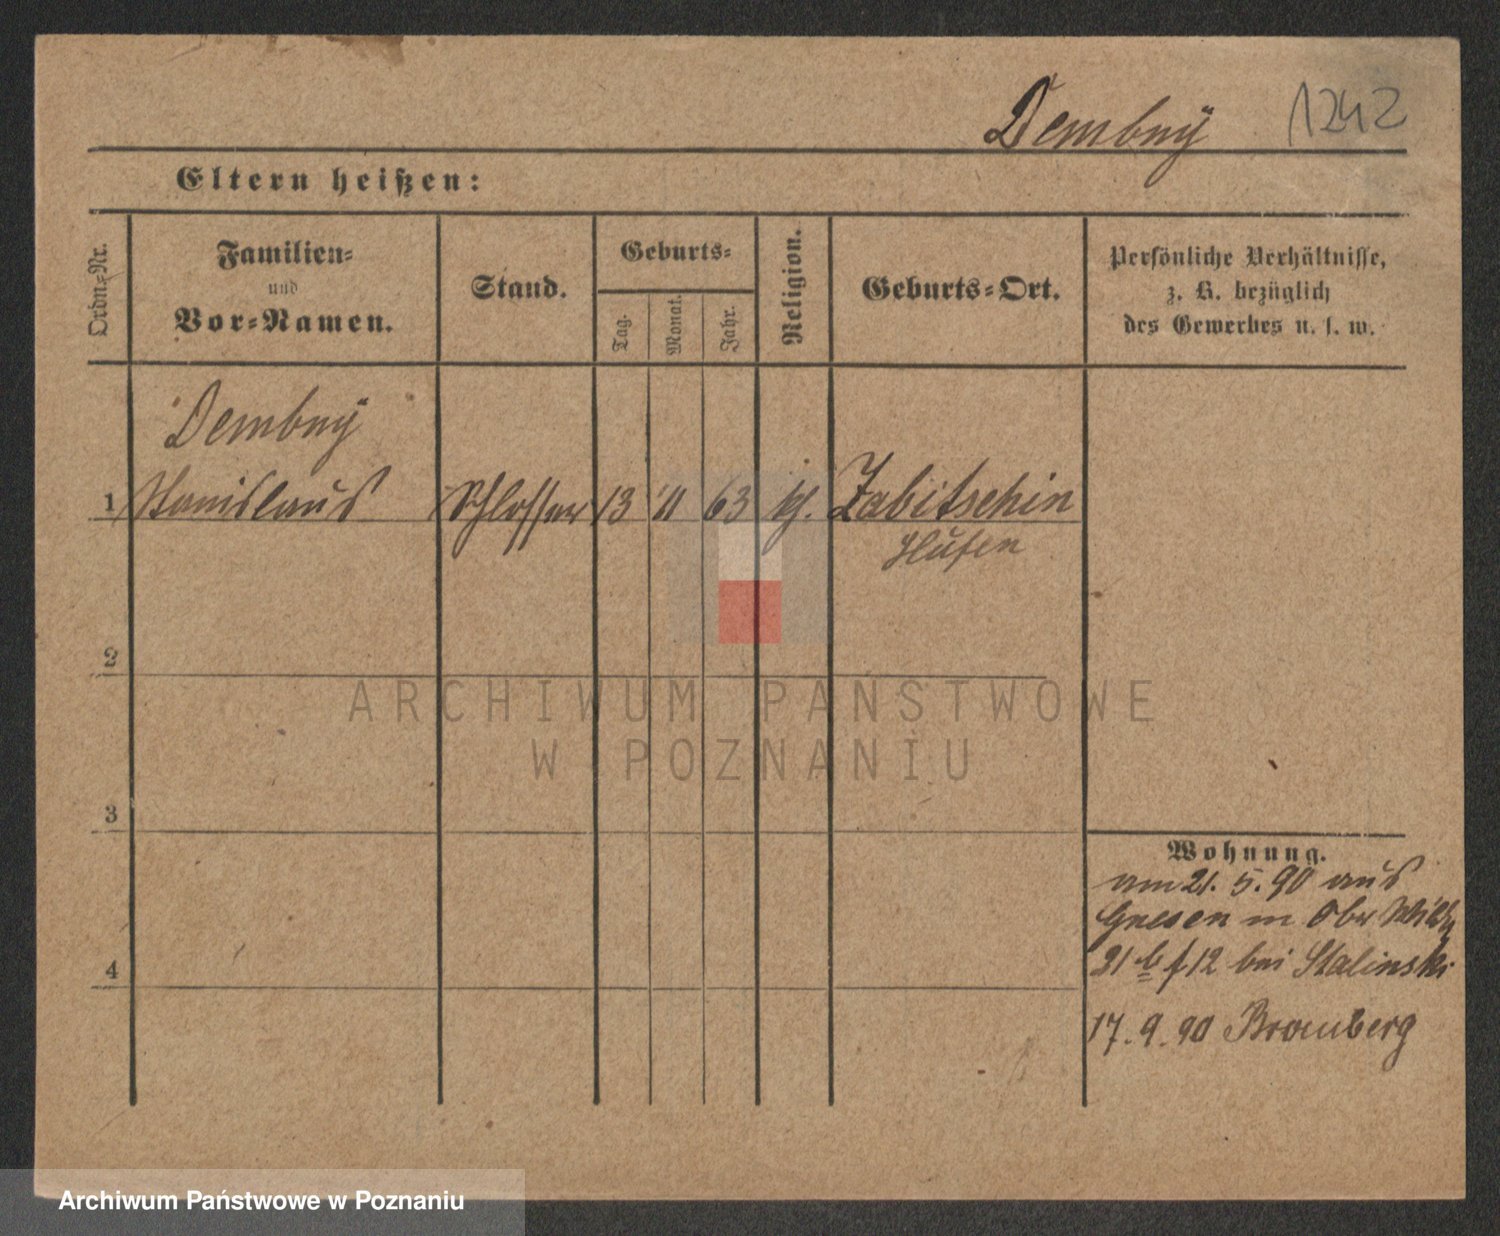 Dembny 1242
Eltern heißen:
Ordn.-Nr.
Familien-
und
Vor-Namen.
Stand.
Geburts-
Tag.
Monat.
Jahr.
Religion.
Geburts-Ort.
Persönliche Verhältnisse,
z. B. bezüglich
des Gewerbes u. s. w.
Dembny
1 Stanislaus Schlosser 13 11 63 kh. Zabitschin
Hufen
2
3
4
Wohnung.
am 21. 5. 90 aus
Gnesen in Ober Wilda
31 b f 12 bei Stalinski
17. 9. 90 Bromberg
ARCHIWUM PAŃSTWOWE
W POZNANIU
Archiwum Państwowe w Poznaniu